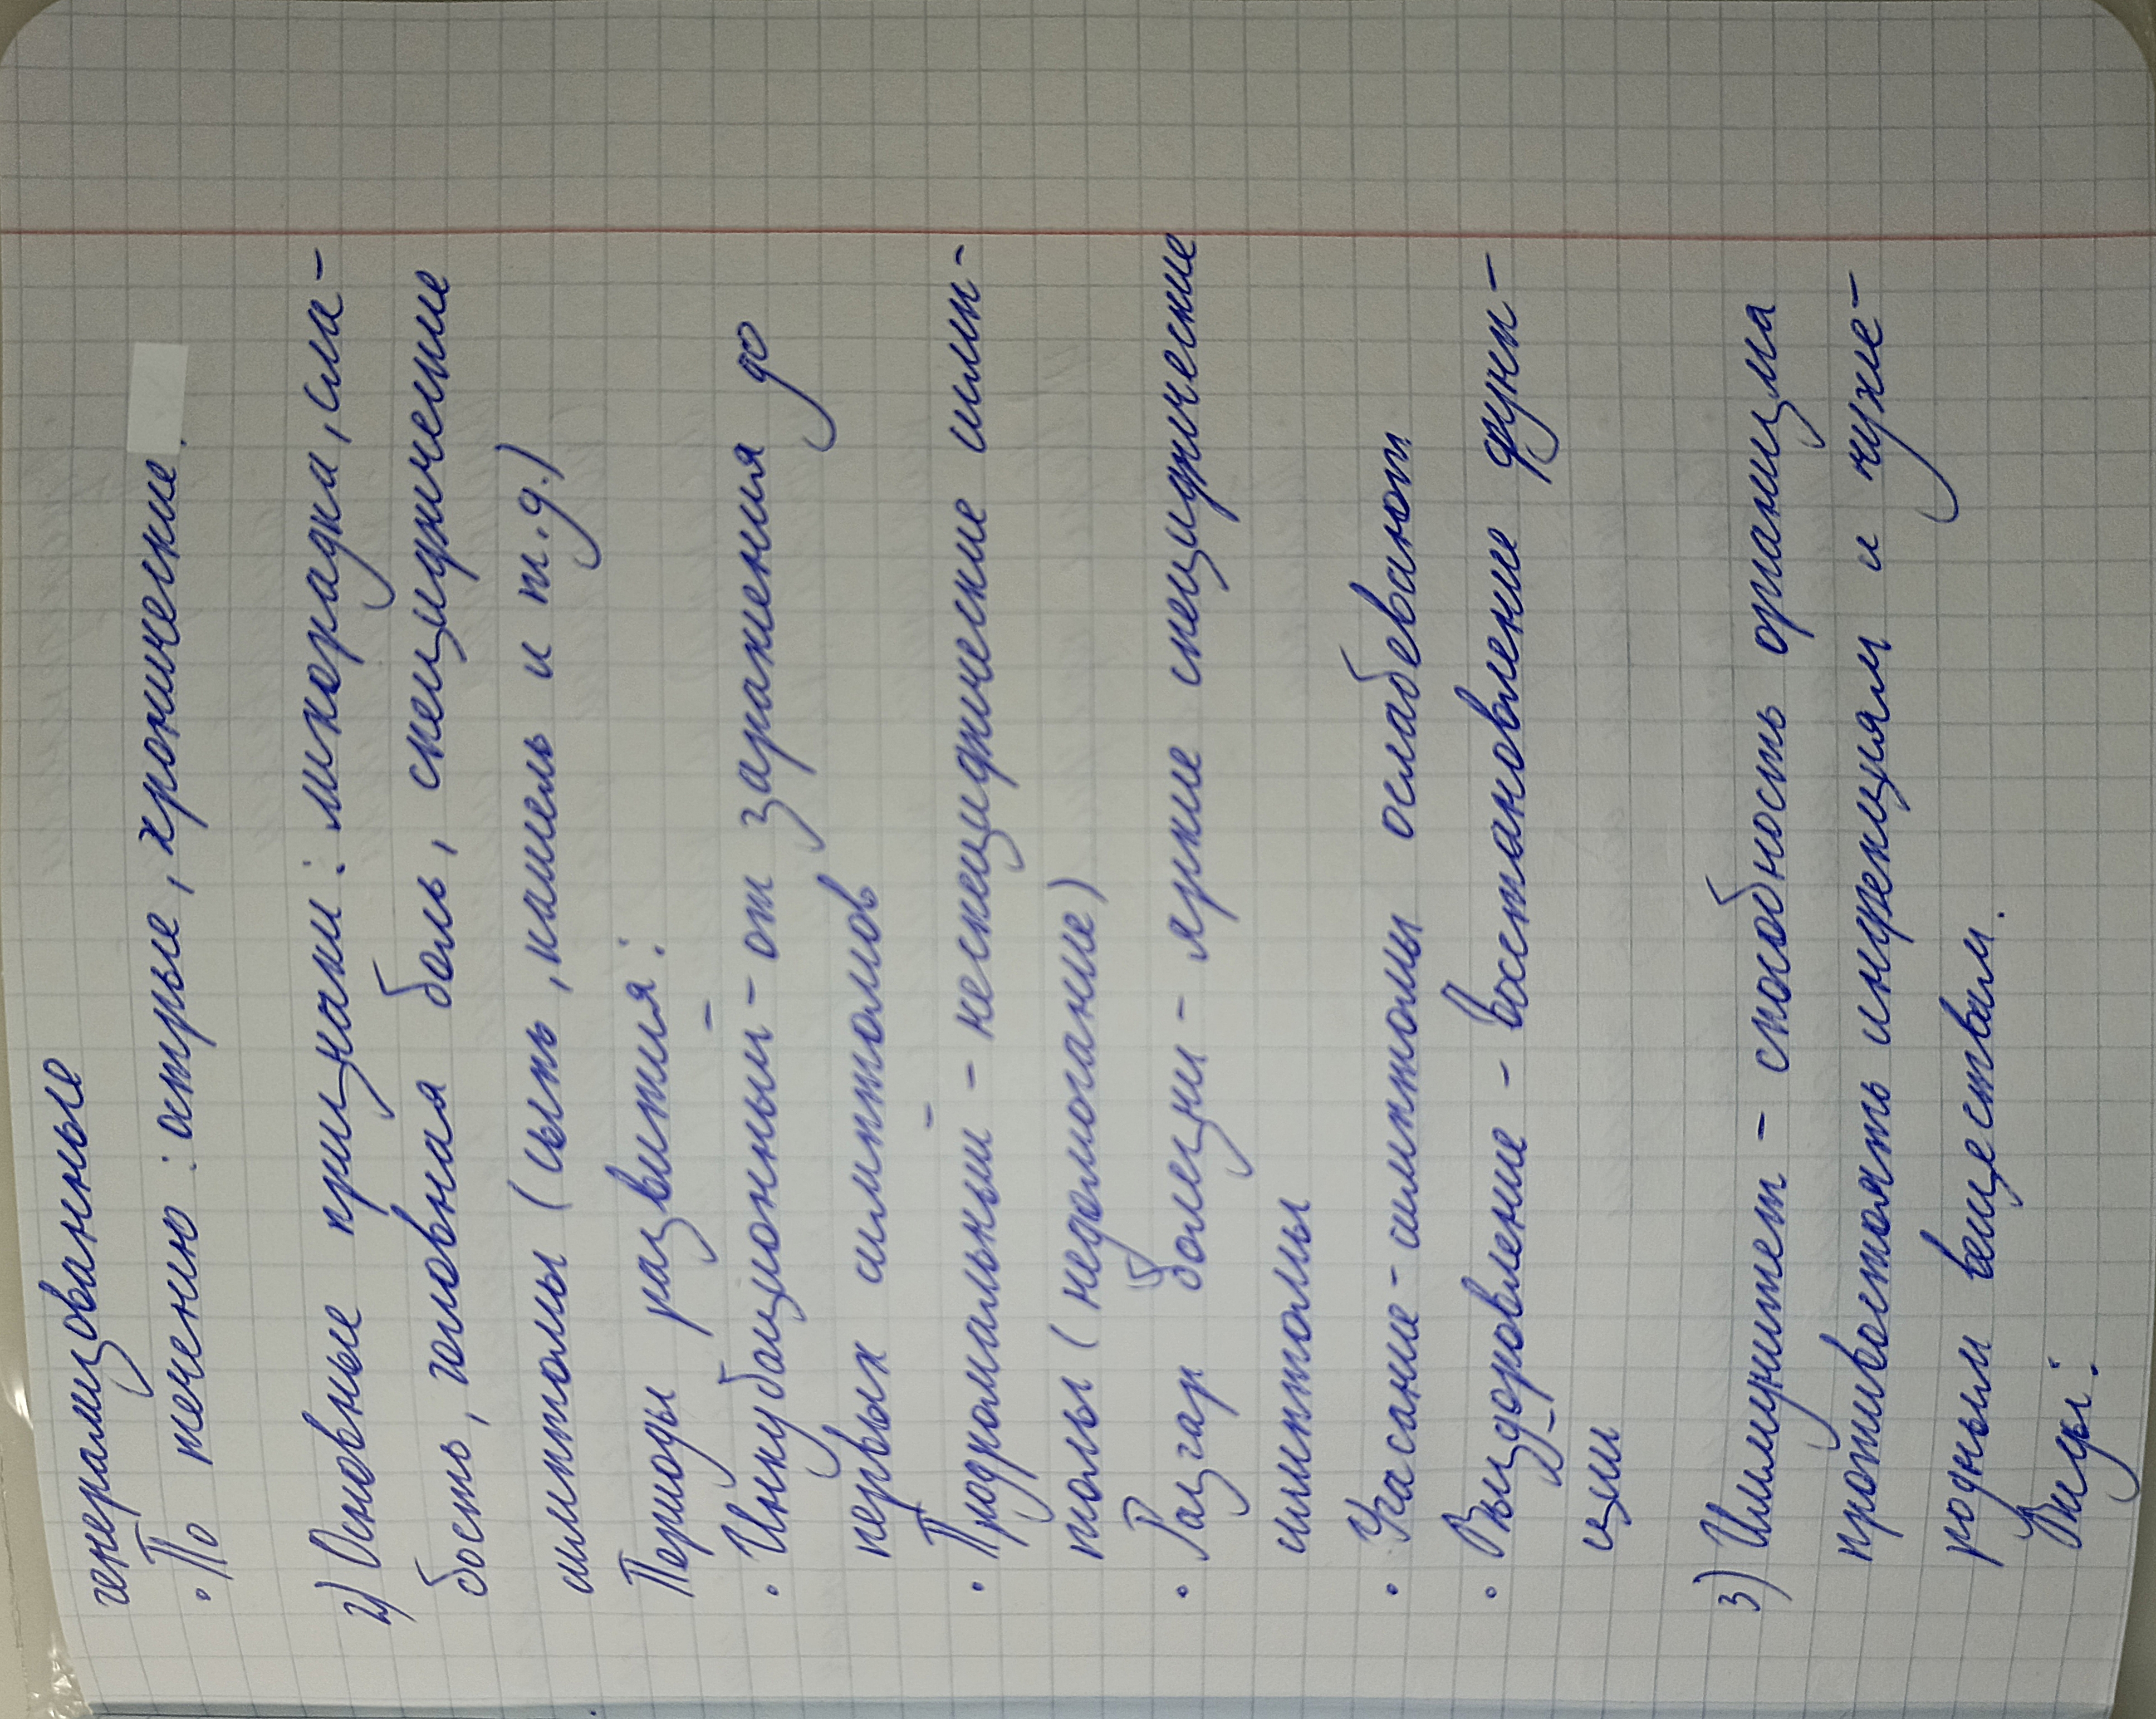 генерализованные
• По течению: острые, хронические.
2) Основные признаки: лихорадка, сла-
бость, головная боль, специфические
симптомы (сыпь, кашель и т.д.)
Периоды развития:
• Инкубационный - от заражения до
первых симптомов
• Продромальный - неспецифические симп-
томы (недомогание)
• Разгар болезни - яркие специфические
симптомы
• Угасание - симптомы ослабевают
• Выздоровление - восстановление функ-
ции
3) Иммунитет - способность организма
противостоять инфекциям и чуже-
родным веществам.
Виды: